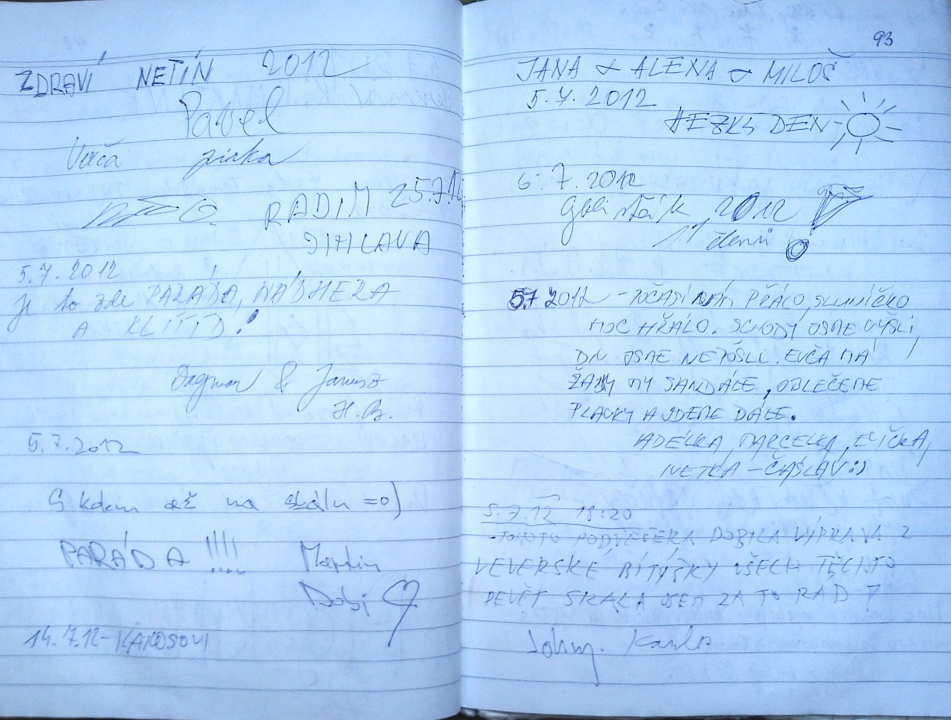 ZDRAVÍ NETÍN 2012
Pavel
Verča
RADIM 25.7.12
JIHLAVA
5.7.2012
Je to zde PARÁDA, NÁDHERA
A KLÍÍÍD!
Dagmar & Janusz
H.B.
5.7.2012
S kolem až na skálu =o)
PARÁDA !!!! Martin
Dobi
14.7.12 -
93
JANA & ALENA & MILOŠ
5.7.2012
HEZKÝ DEN
6.7.2012
2012
11 členů
5.7.2012 - POČASÍ NÁM PŘÁLO, SLUNÍČKO
MOC HŘÁLO. SCHODY JSME VYŠLI,
DN JSME NEPOŠLI. EVČA MÁ
ŽABY MY SANDÁLE, OBLEČEME
PLAVKY A JDEME DÁLE.
ADÉLKA, MARCELKA, EVIČKA,
IVETKA - ČÁSLAV :)
5.7.12 18:20
- TOHOTO PODVEČERA DOBYLA VÝPRAVA Z
VEVERSKÉ BÍTÝŠKY VŠECH TĚCHTO
DEVĚT SKAL A JSEM ZA TO RÁD